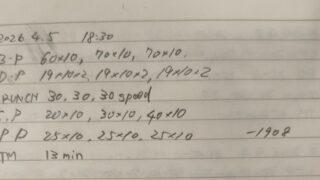 2026 4.5 18:30
B.P 60×10, 70×10, 70×10.
D.P 19×10×2, 19×10×2, 19×10×2
CRUNCH 30, 30, 30 speed
.P 20×10, 30×10, 40×10
PD 25×10, 25×10, 25×10 -1908
TM 13 min